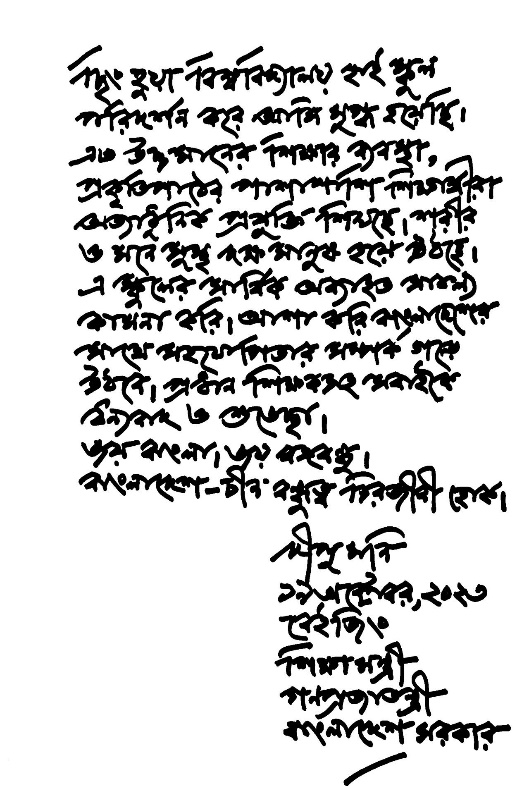 ছিংহুয়া বিশ্ববিদ্যালয় হাই স্কুল
পরিদর্শন করে আমি মুগ্ধ হয়েছি।
এত উচ্চমানের শিক্ষার ব্যবস্থা,
প্রকৃতিপাঠের পাশাপাশি শিক্ষার্থীরা
অত্যাধুনিক প্রযুক্তি শিখছে। শরীর
ও মনে সুস্থ দক্ষ মানুষ হয়ে উঠছে।
এ স্কুলের সার্বিক অব্যাহত সাফল্য
কামনা করি। আশা করি বাংলাদেশের
সাথে সহযোগিতার সম্পর্ক গড়ে
উঠবে। প্রধান শিক্ষকসহ সবাইকে
ধন্যবাদ ও শুভেচ্ছা।
জয় বাংলা। জয় বঙ্গবন্ধু।
বাংলাদেশ-চীন বন্ধুত্ব চিরজীবী হোক।
দীপু মনি
১৯ অক্টোবর, ২০২৩
বেইজিং
শিক্ষা মন্ত্রী
গণপ্রজাতন্ত্রী
বাংলাদেশ সরকার